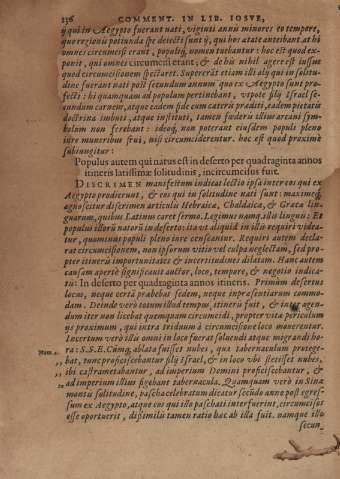 236 COMMENT. IN LIB. IOSVE,
ij qui in Aegypto fuerant nati, viginti annis minores eo tempore,
quo regionis potiunda spe detecti sunt ij, qui hac ætate anteibant. at hi
omnes circumcisi erant, populiq; nomen tuebantur: hoc est quod ex-
ponit, qui omnes circumcisi erant; & de his nihil agere est visus
quod circumcisionem spectaret. Supererāt etiam illi alij qui in solitu-
dine fuerant nati post secundum annum quo ex Aegypto sunt pro-
fecti: hi quamquam ad populum pertinebant, vtpote filij Israel se-
cundum carnem, atque eadem fide cum cateris prediti, eadem pietatis
doctrina imbuti, atque instituti, tamen fœderis illius arcani sym-
bolum non ferebant: ideoq; non poterant eiusdem populi pleno
iure muneribus frui, nisi circumciderentur. hoc est quod proximè
subiungitur:
Populus autem qui natus est in deserto per quadraginta annos
itineris latissimæ solitudinis, incircumcisus fuit.
DISCRIMEN manifestum indicat lectio ipsa inter eos qui ex
Aegypto prodierunt, & eos qui in solitudine nati sunt: maximeq;
agnoscitur discrimen articulis Hebraica, Chaldaica, & Græca lin-
guarum, quibus Latinus caret sermo. Legimus namq. illis linguis: Et
populus illorū natorū in deserto: ita vt aliquid in illis requiri videa-
tur, quominus populi pleno iure censeantur. Requiri autem decla-
rat circumcisionem, non ipsorum vitio vel culpa neglectam, sed pro-
pter itineris importunitates & incertitudines dilatam. Hanc autem
causam apertè significauit auctor, loco, tempore, & negotio indica-
tis: In deserto per quadraginta annos itineris. Primùm desertus
locus, neque certā præbebat sedem, neque inpræsentiarum commo-
dam. Deinde verò totum illud tempus, itineris fuit, & inter agen-
dum iter non licebat quemquam circumcidi, propter vitæ periculum
ijs proximum, qui intra triduum à circumcisione loco mouerentur.
Incertum verò illis omni in loco fuerat solstandi atque migrandi ho-
Num. 9. ra: S.S.E. Cùmq; ablata fuisset nubes, qua tabernaculum protege-
bat, tunc proficiscebantur filij Israel, & in loco vbi stetisset nubes,
ibi castrametabantur, ad imperium Domini proficiscebantur, &
ad imperium illius figebant tabernacula. Quamquam verò in Sinæ
montis solitudine, pascha celebratum dicatur secūdo anno post egres-
sum ex Aegypto, atque eos qui illo paschati interfuerint, circumcisos
esse oportuerit, dissimilis tamen ratio hac ab illa fuit. namque illo
secun